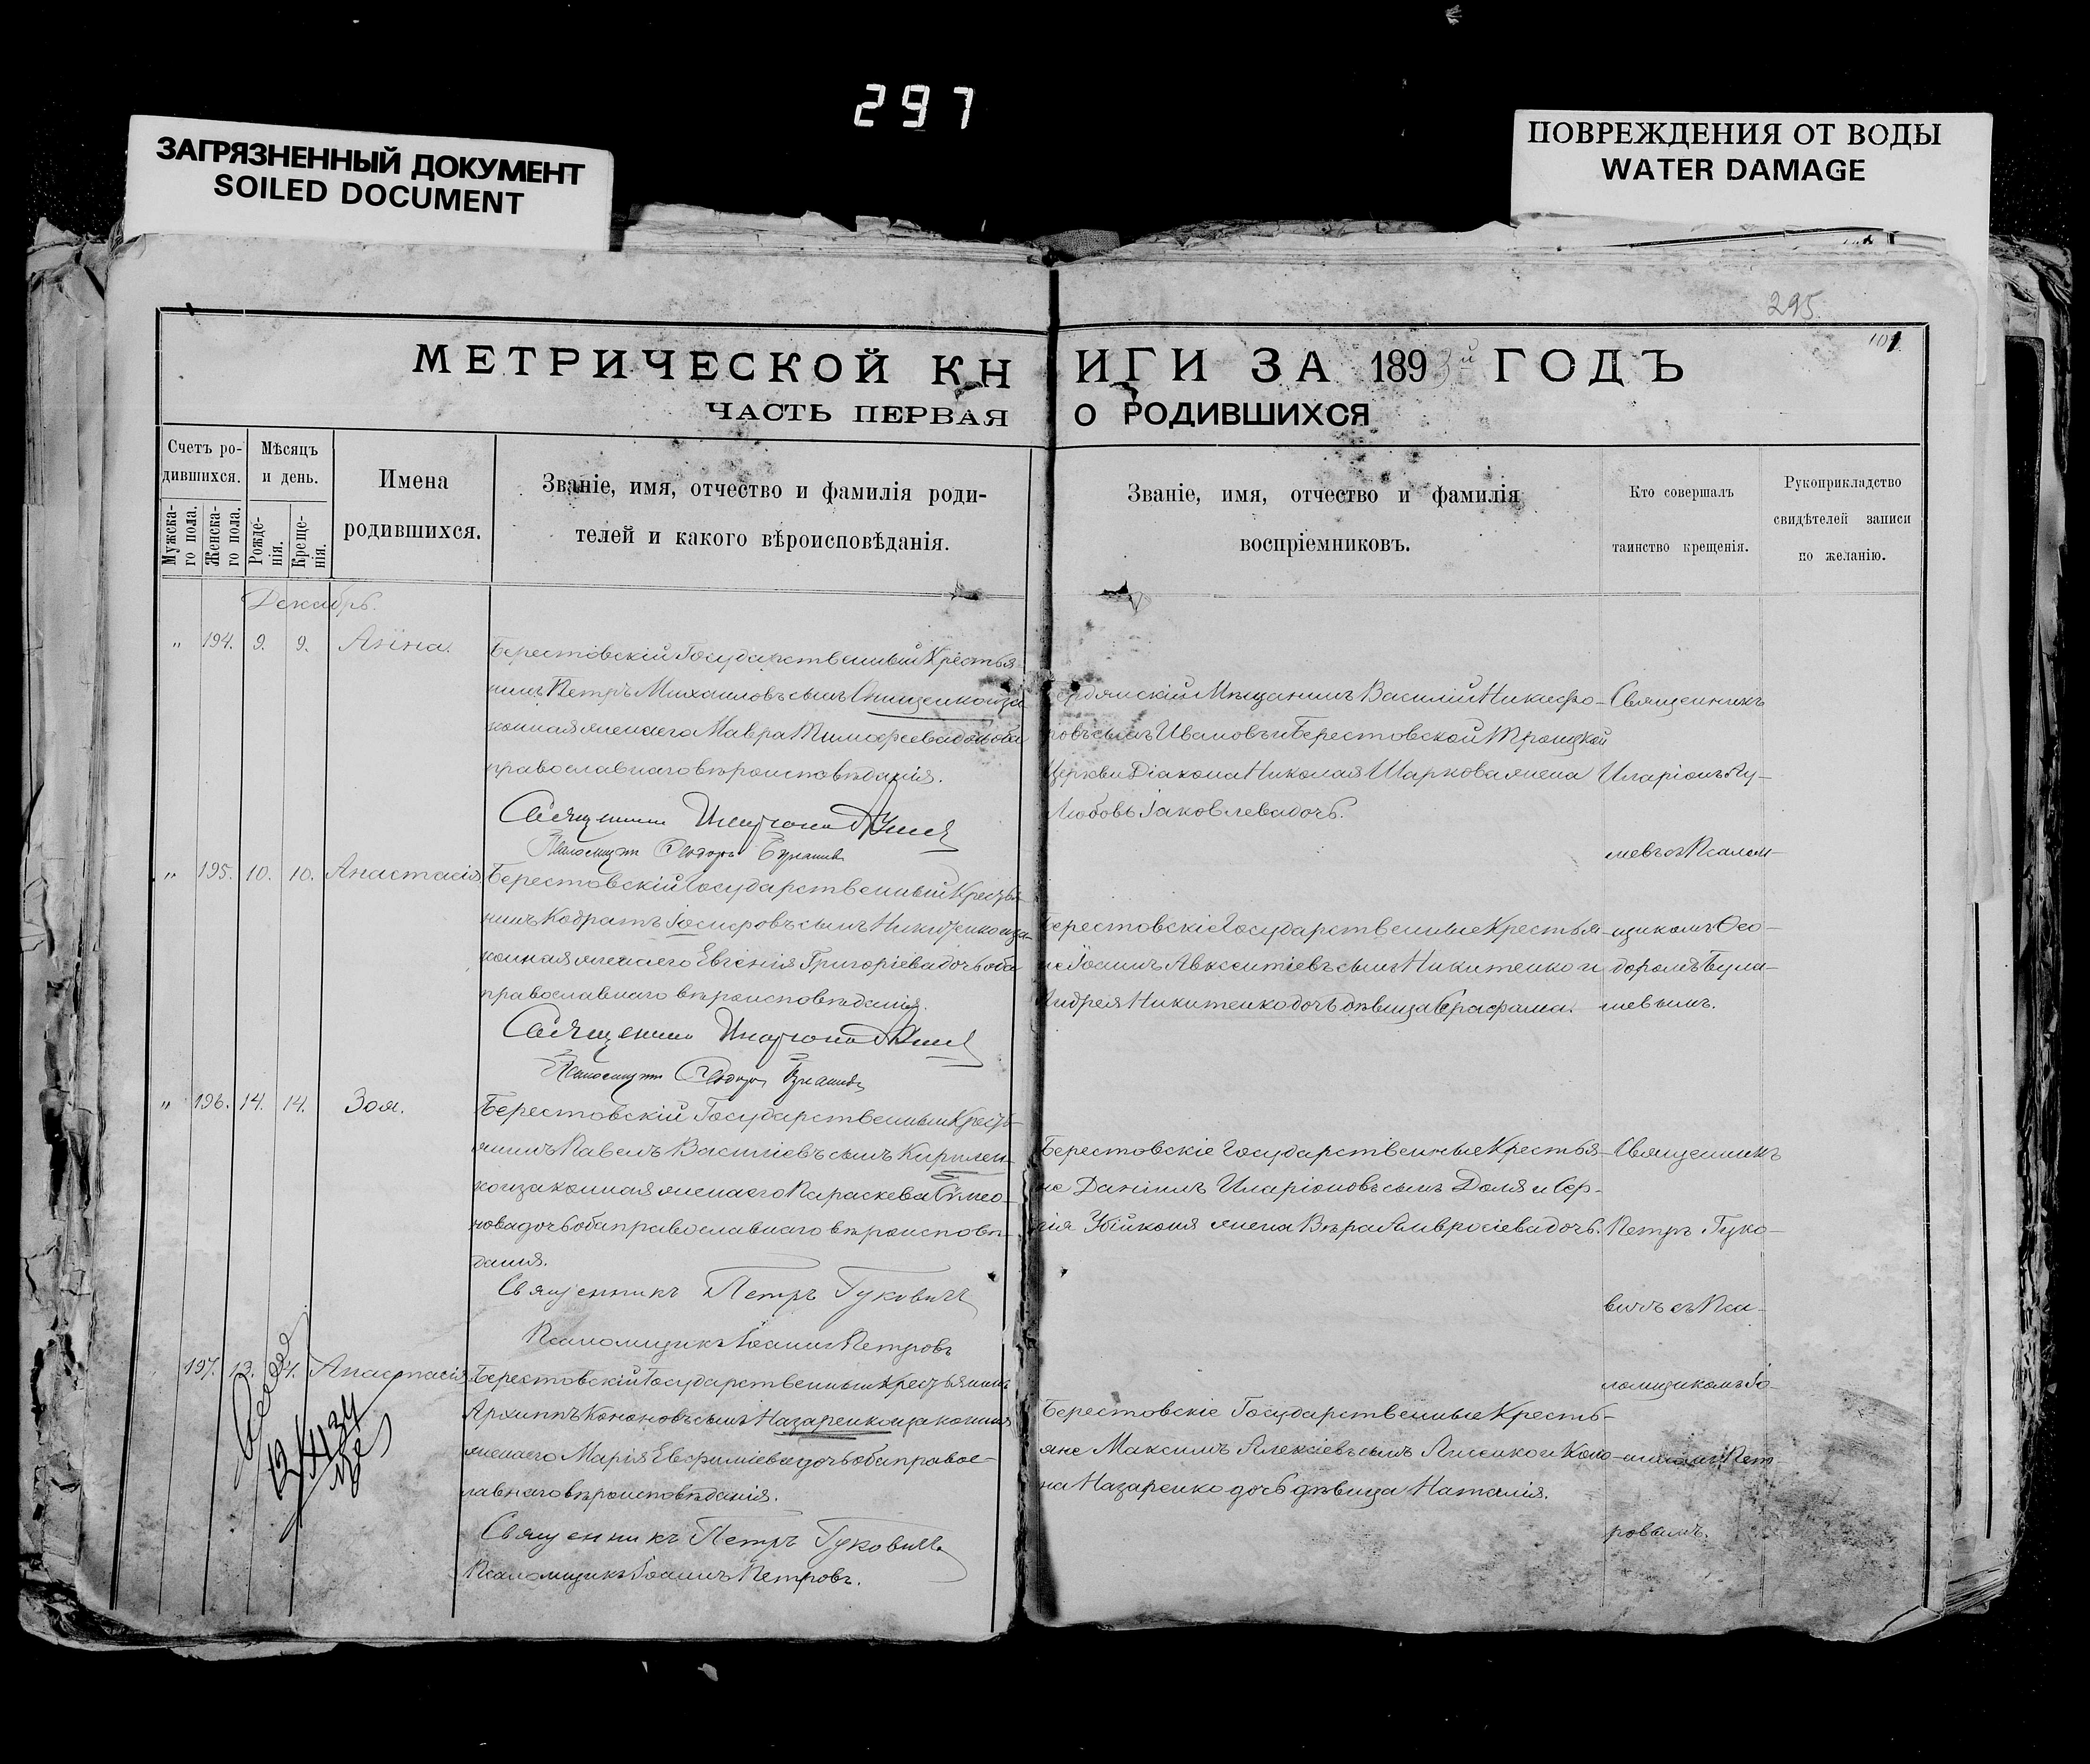 297
ЗАГРЯЗНЕННЫЙ ДОКУМЕНТ
SOILED DOCUMENT
ПОВРЕЖДЕНИЯ ОТ ВОДЫ
WATER DAMAGE
295.
101
МЕТРИЧЕСКОЙ КНИГИ ЗА 1893й ГОДЪ
ЧАСТЬ ПЕРВАЯ О РОДИВШИХСЯ
Счетъ ро-
дившихся.
Мужска-
го пола.
Женска-
го пола.
Мѣсяцъ
и день.
Рожде-
нія.
Креще-
нія.
Имена
родившихся.
Званіе, имя, отчество и фамилія роди-
телей и какого вѣроисповѣданія.
Званіе, имя, отчество и фамилія
воспріемниковъ.
Кто совершалъ
таинство крещенія.
Рукоприкладство
свидѣтелей записи
по желанію.
Декабрь.
" 194. 9. 9. Анна.
Берестовскій Государственный Крестья-
нинъ Петръ Михаиловъ сынъ Онищенко и за
конная жена его Мавра Тимофеева дочь оба
православнаго вѣроисповѣданія.
Священникъ Иларіонъ
Псаломщикъ Ѳеодоръ
Бердянскій Мѣщанинъ Василій Никифо-
ровъ сынъ Ивановъ и Берестовской Троицкой
Церкви Діакона Николая Шаркова жена
Любовь Іаковлева дочь.
Священникъ
Иларіонъ Лу-
невъ съ Псалом-
" 195. 10. 10. Анастасія
Берестовскій Государственный Крестья-
нинъ Кодратъ Іосифовъ сынъ Никитенко и за-
конная жена его Евгенія Григоріева дочь оба
православнаго вѣроисповѣданія.
Священникъ Иларіонъ
Псаломщикъ Ѳеодоръ
Берестовскіе Государственные Крестья-
не Іоаннъ Авксентіевъ сынъ Никитенко и
Андрея Никитенко дочь дѣвица Серафима.
щикомъ Ѳео-
доромъ
" 196. 14. 14. Зоя.
Берестовскій Государственный Кресть-
янинъ Павелъ Василіевъ сынъ Кирилен-
ко и законная жена его Параскева Симео-
нова дочь оба православнаго вѣроисповѣ-
данія.
Священникъ Петръ Гуковичъ
Псаломщикъ Іоаннъ Петровъ
Берестовскіе Государственные Крестья-
не Даніилъ Иларіоновъ сынъ Доля и Сер-
гія жена Вѣра Амвросіева дочь.
Священникъ
Петръ Гуко-
вичъ съ Пса-
ломщикомъ Іо-
197. 13. 14. Анастасія
Берестовскій Государственный Крестьянинъ
Архиппъ Кононовъ сынъ Назаренко и законная
жена его Марія Евфиміева дочь оба правос-
лавнаго вѣроисповѣданія.
Священникъ Петръ Гуковичъ
Псаломщикъ Іоаннъ Петровъ.
Берестовскіе Государственные Кресть-
яне Максимъ Алексіевъ сынъ Лисенко и Коно-
на Назаренко дочь дѣвица Наталія.
анномъ Пет-
ровымъ.